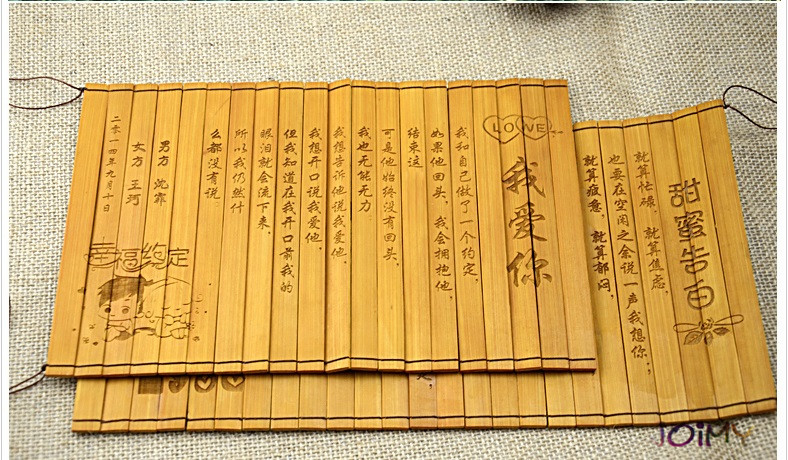 甜蜜告白
就算忙碌，就算焦虑，
也要在空闲之余说一声我想你，
就算疲惫，就算郁闷，
LOVE
我爱你
我和自己做了一个约定，
如果他回头，我会拥抱他，
结束这
可是他始终没有回头，
我也无能无力
我想告诉他说我爱他，
我想开口说我爱他，
但我知道在我开口前我的
眼泪就会流下来，
所以我仍然什
么都没有说
男方 沈霏
女方 王珂
二零一四年九月十日
幸福约定
JOiMY